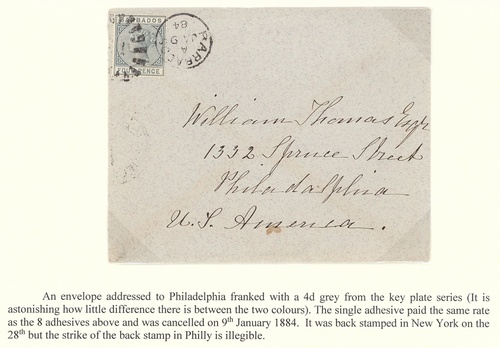 BARBADOS
FOUR PENCE
BARBADOS
A
JA 9
84
William Thomas Esqr
1332 Spruce Street
Philadalphia
U.S. America.
An envelope addressed to Philadelphia franked with a 4d grey from the key plate series (It is
astonishing how little difference there is between the two colours). The single adhesive paid the same rate
as the 8 adhesives above and was cancelled on 9th January 1884. It was back stamped in New York on the
28th but the strike of the back stamp in Philly is illegible.